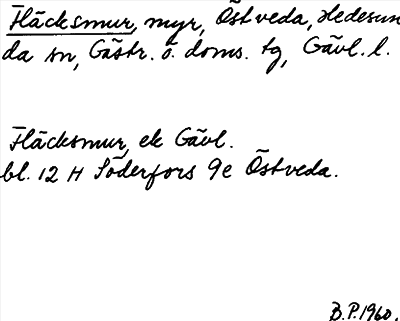 Fläcksmur, myr, Östveda, Hedesun
da sn, Gästr. ö. doms. tg, Gävl. l.
Fläcksmur, ek Gävl.
bl. 12 H Söderfors 9e Östveda.
B.P.1960.